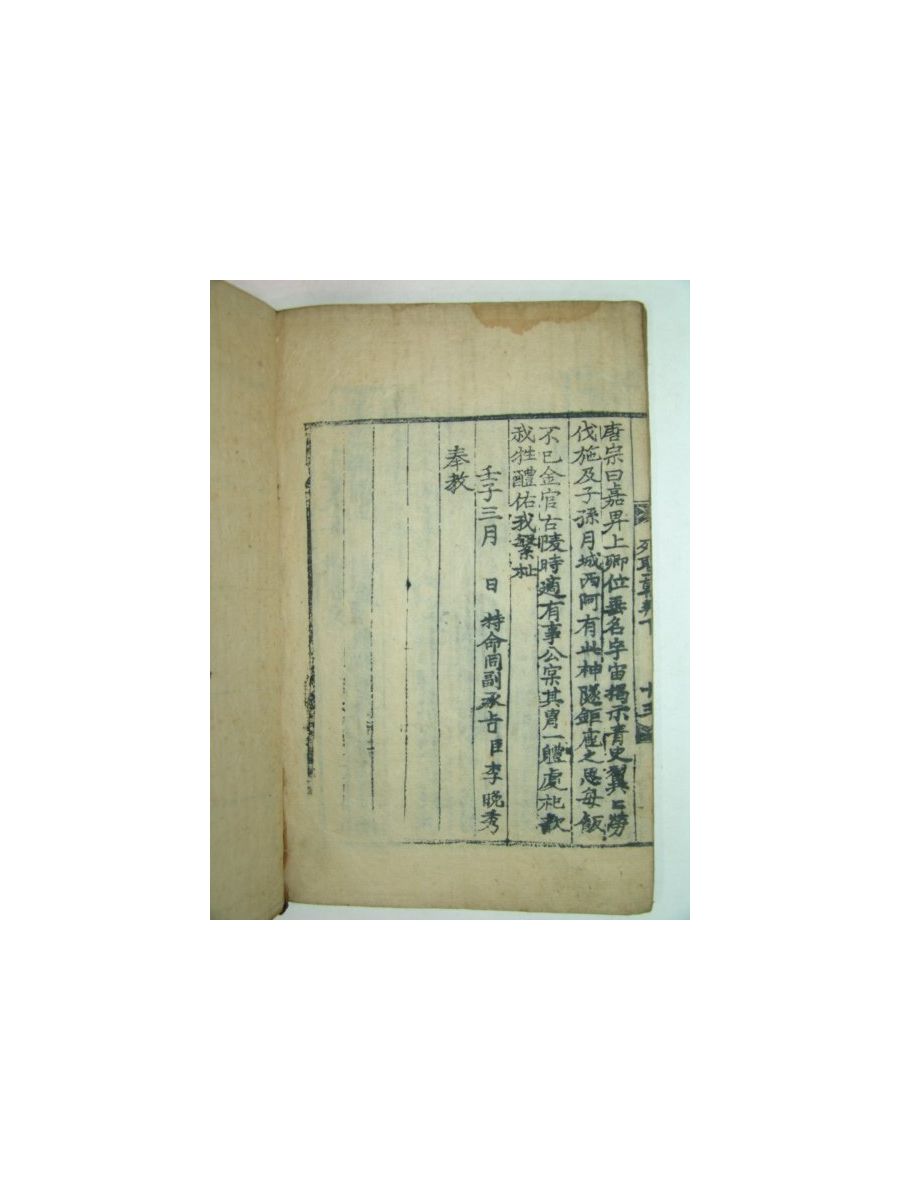 唐宗曰嘉畀上卿位垂名宇宙揭示青史翼〻勞
伐施及子孫月城西阿有此神隧鉅産之恩每飯
不已金官古陵時適有事公寀其胃一軆處祀歆
我牲醴佑我繁祉
壬子三月 日 特命同副承旨臣李晩秀
奉教
十三